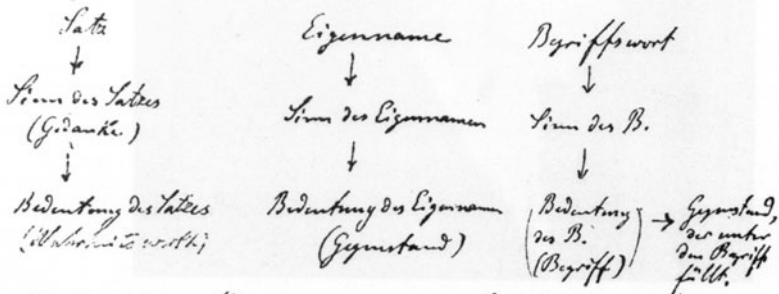 Satz
Sinn des Satzes
(Gedanke)
Bedeutung des Satzes
(Wahrheitswerth)
Eigenname
Sinn des Eigennamens
Bedeutung des Eigennamens
(Gegenstand)
Begriffswort
Sinn des B.
Bedeutung
des B.
(Begriff)
Gegenstand,
der unter
den Begriff
fällt.